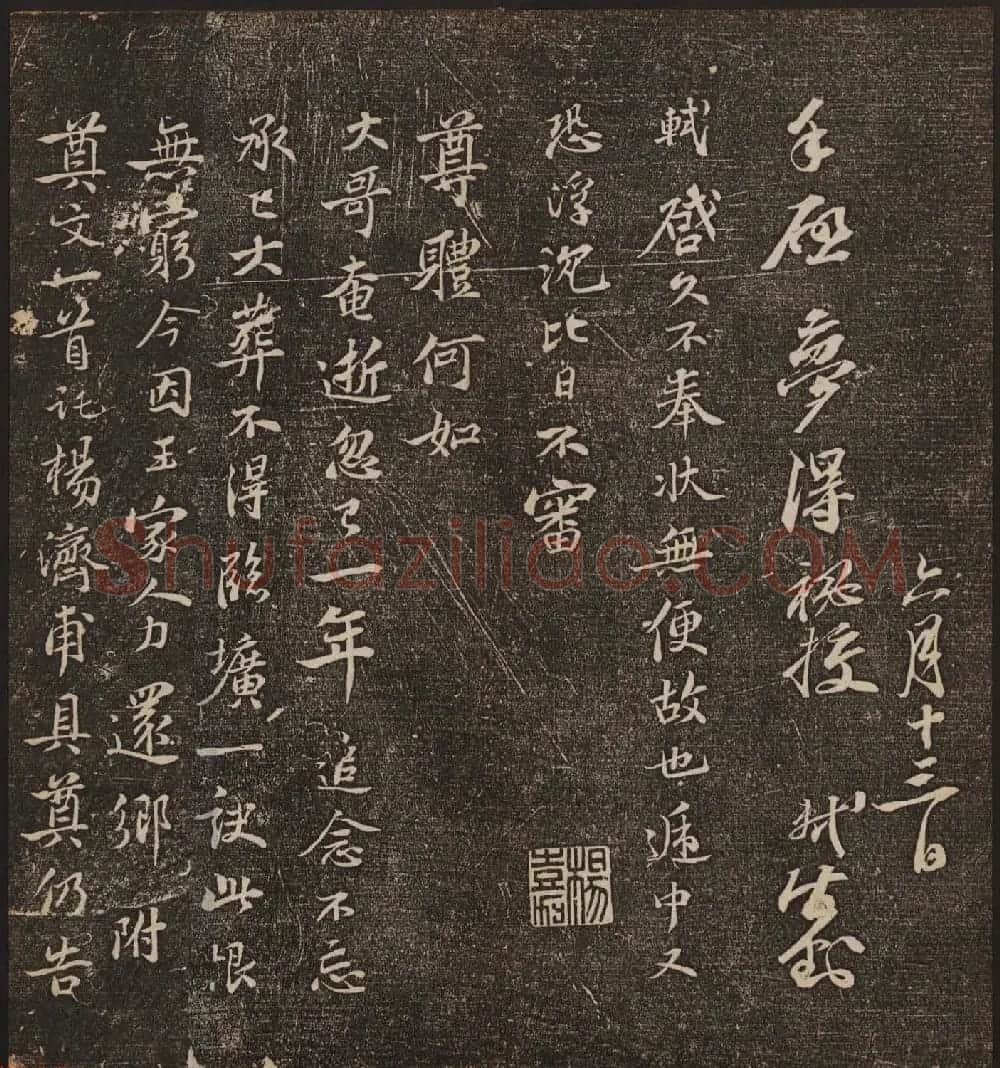 六月十三日
手啟夢得祕挍 軾封
軾啓久不奉狀無便故也遞中又
恐浮沉比日不審
尊體何如
大哥奄逝忽已一年追念不忘
承已大葬不得臨壙一訣此恨
無窮今因王家人力還鄉附
奠文一首託楊濟甫具奠仍告
楊
Shufaziliao.COM